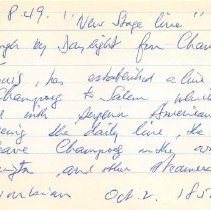 8.49. "New Stage line"
by Daylight from Cham
, has established a line
Champoeg to Salem which
with Sayers American
the daily line, he
leave Champoeg on the ar
, and other steamers
Oct. 2. 185